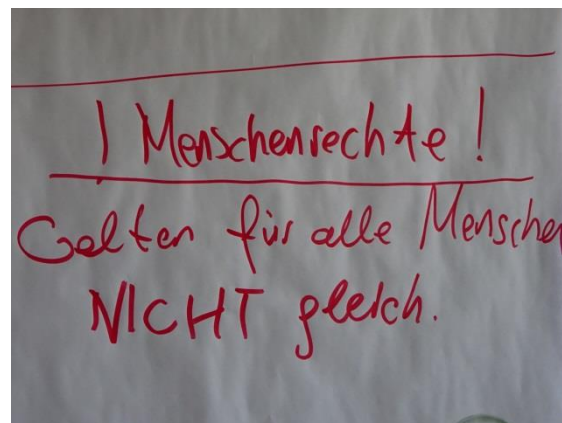 ! Menschenrechte!
Gelten für alle Menschen
NICHT gleich.